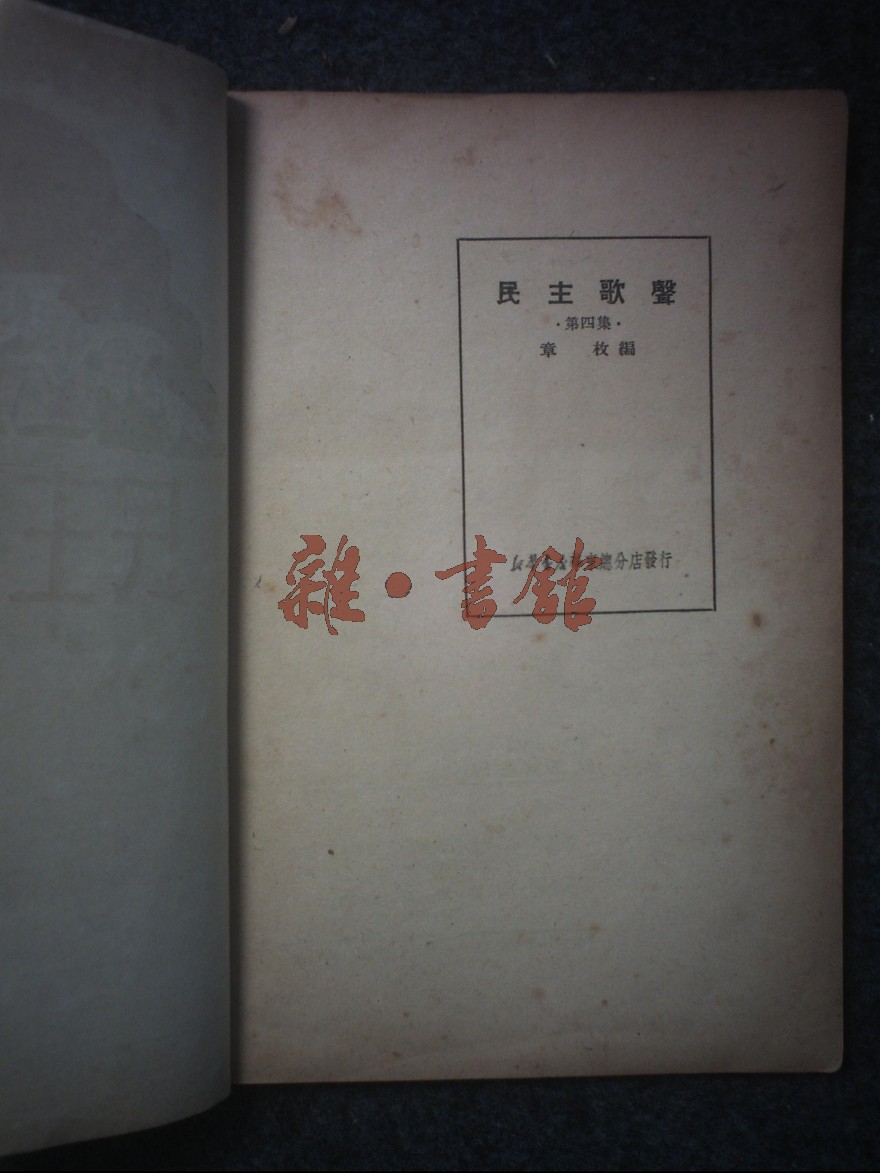 民主歌聲
·第四集·
章枚編
總分店發行
雜·書館